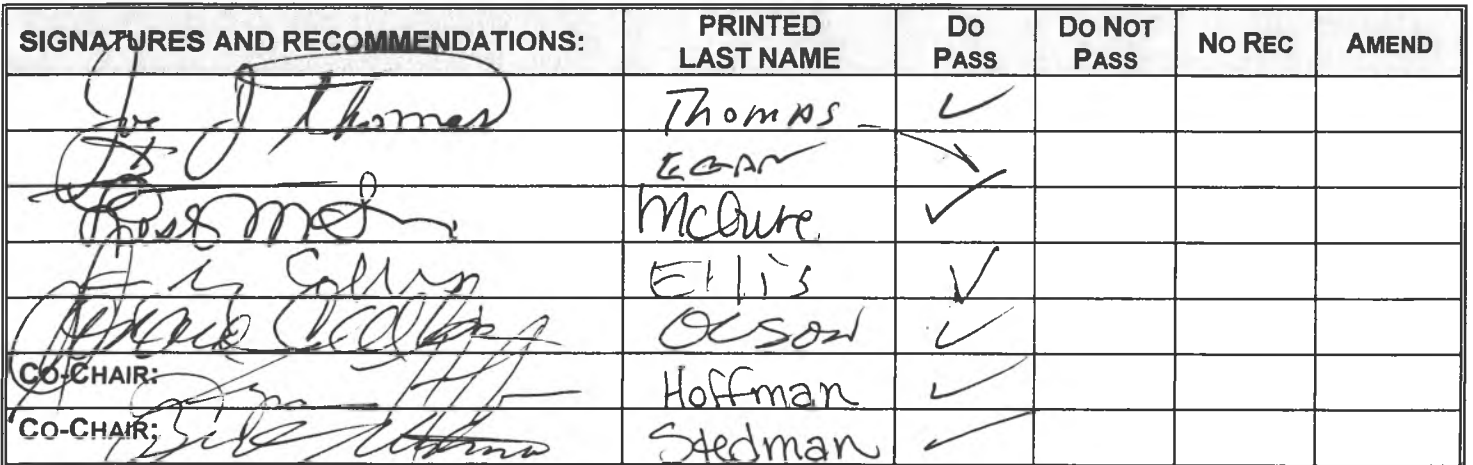 SIGNATURES AND RECOMMENDATIONS: PRINTED LAST NAME DO PASS DO NOT PASS NO REC AMEND
Joe J Thomas Thomas ✓
EGAN ✓
McGuire ✓
Ellis ✓
OLSON ✓
CO-CHAIR: Hoffman ✓
CO-CHAIR: Stedman ✓